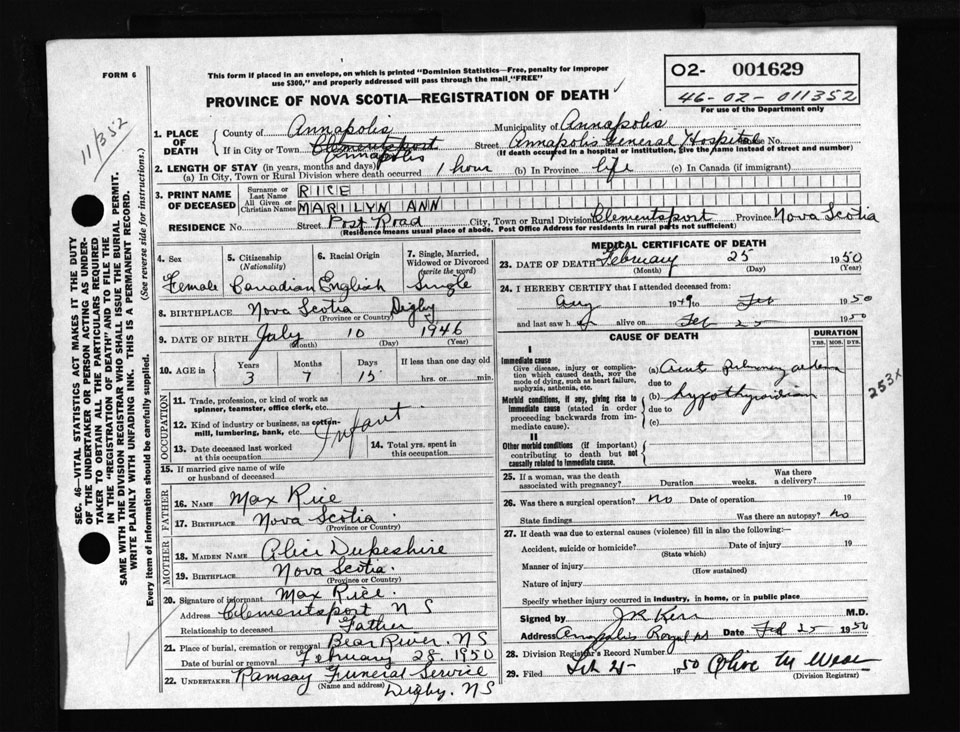 FORM 6
This form if placed in an envelope, on which is printed "Dominion Statistics—Free, penalty for improper
use $300," and properly addressed will pass through the mail "FREE"
PROVINCE OF NOVA SCOTIA—REGISTRATION OF DEATH
02- 001629
46-02-011352
For use of the Department only
11/352
SEC. 46—VITAL STATISTICS ACT MAKES IT THE DUTY
OF THE UNDERTAKER OR PERSON ACTING AS UNDER-
TAKER TO OBTAIN ALL THE PARTICULARS REQUIRED
IN THE "REGISTRATION OF DEATH" AND TO FILE THE
SAME WITH THE DIVISION REGISTRAR WHO SHALL ISSUE THE BURIAL PERMIT.
WRITE PLAINLY WITH UNFADING INK. THIS IS A PERMANENT RECORD.
Every item of information should be carefully supplied. (See reverse side for instructions.)
1. PLACE OF DEATH
County of Annapolis Municipality of Annapolis
If in City or Town Clementsport Annapolis Street Annapolis General Hospital House No.
(If death occurred in a hospital or institution, give the name instead of street and number)
2. LENGTH OF STAY (in years, months and days)
(a) In City, Town or Rural Division where death occurred 1 hour (b) In Province life (c) In Canada (if immigrant)
3. PRINT NAME OF DECEASED
Surname or Last Name RICE
All Given or Christian Names MARILYN ANN
RESIDENCE No. Street Post Road City, Town or Rural Division Clementsport Province Nova Scotia
(Residence means usual place of abode. Post Office Address for residents in rural parts not sufficient)
4. Sex Female
5. Citizenship (Nationality) Canadian
6. Racial Origin English
7. Single, Married, Widowed or Divorced (write the word) Single
8. BIRTHPLACE Nova Scotia Digby
(Province or Country)
9. DATE OF BIRTH July 10 1946
(Month) (Day) (Year)
10. AGE in Years 3 Months 7 Days 15 If less than one day old hrs. or min.
OCCUPATION
11. Trade, profession, or kind of work as spinner, teamster, office clerk, etc.
12. Kind of industry or business, as cotton-mill, lumbering, bank, etc. Infant
13. Date deceased last worked at this occupation
14. Total yrs. spent in this occupation
15. If married give name of wife or husband of deceased
FATHER
16. NAME Max Rice
17. BIRTHPLACE Nova Scotia
(Province or Country)
MOTHER
18. MAIDEN NAME Alice Dukeshire
19. BIRTHPLACE Nova Scotia.
(Province or Country)
20. Signature of informant Max Rice.
Address Clementsport, N S
Relationship to deceased Father
21. Place of burial, cremation or removal Bear River, NS
Date of burial or removal February 28, 1950
22. UNDERTAKER Ramsay Funeral Service
(Name and address) Digby, NS
MEDICAL CERTIFICATE OF DEATH
23. DATE OF DEATH February 25 1950
(Month) (Day) (Year)
24. I HEREBY CERTIFY that I attended deceased from:
Aug 1949 to Feb 1950
and last saw h er alive on Feb 25 1950
CAUSE OF DEATH
DURATION
YRS. MOS. DYS.
I
Immediate cause
Give disease, injury or complication which caused death, not the mode of dying, such as heart failure, asphyxia, asthenia, etc.
(a) Acute pulmonary oedema
due to
Morbid conditions, if any, giving rise to immediate cause (stated in order proceeding backwards from immediate cause).
(b) hypothyroidism
due to
(c)
253X
II
Other morbid conditions (if important) contributing to death but not causally related to immediate cause.
25. If a woman, was the death associated with pregnancy? Duration weeks. Was there a delivery?
26. Was there a surgical operation? no Date of operation 19
State findings Was there an autopsy? no
27. If death was due to external causes (violence) fill in also the following:—
Accident, suicide or homicide? Date of injury 19
(State which)
Manner of injury
(How sustained)
Nature of injury
Specify whether injury occurred in industry, in home, or in public place
Signed by J R Kerr M.D.
Address Annapolis Royal NS Date Feb 25 1950
28. Division Registrar's Record Number
29. Filed 1950 Olive M
(Division Registrar)